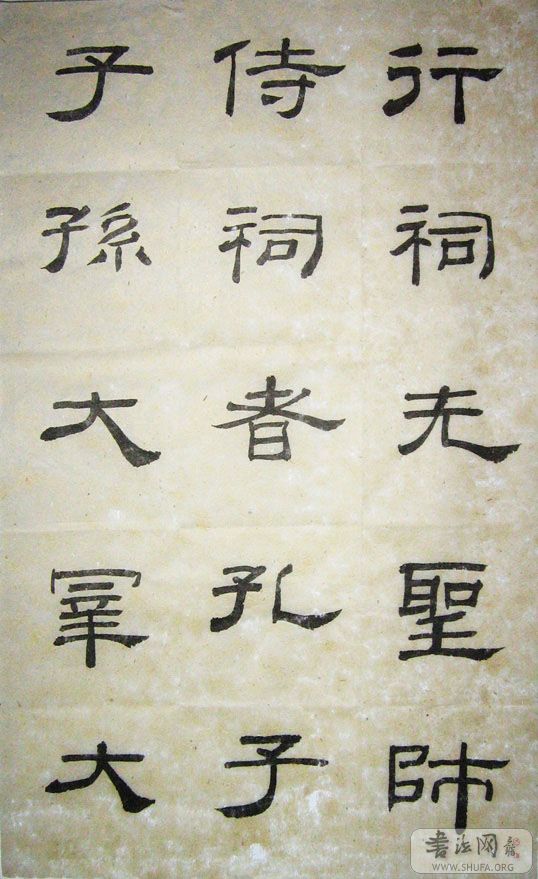 行祠先聖師
侍祠者孔子
子孫大宰大
書法网
WWW.SHUFA.ORG